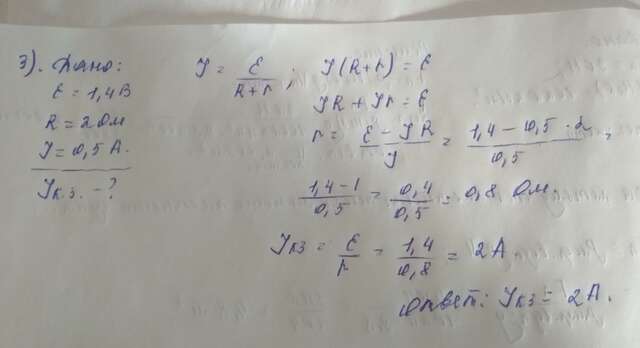 3). Дано:
ℰ = 1,4 В
R = 2 Ом
J = 0,5 А.
Jк.з. - ?
J = ℰ / (R + r) ; J (R + r) = ℰ
JR + Jr = ℰ
r = (ℰ - JR) / J = (1,4 - 0,5 · 2) / 0,5 =
(1,4 - 1) / 0,5 = 0,4 / 0,5 = 0,8 Ом.
Jкз = ℰ / r = 1,4 / 0,8 = 2 А
Ответ: Jкз = 2 А.